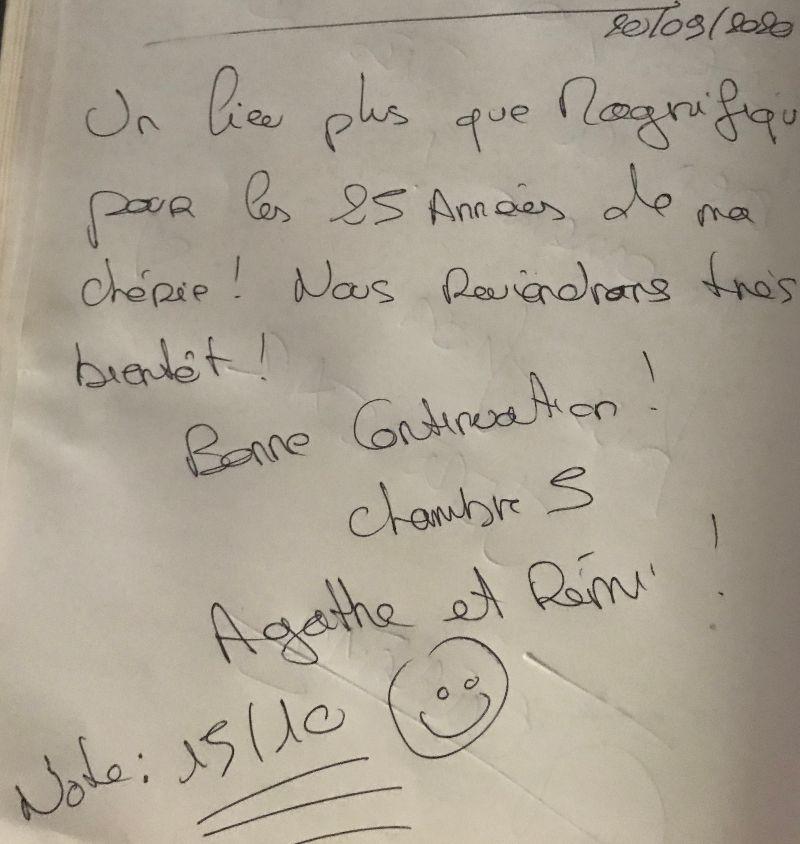 20/09/2020
Un lieu plus que Magnifiqu
pour les 25 Années de ma
chérie ! Nous Reviendrons très
bientôt !
Bonne Continuation !
Chambre 5
Agathe et Rémi !
Note : 15/10